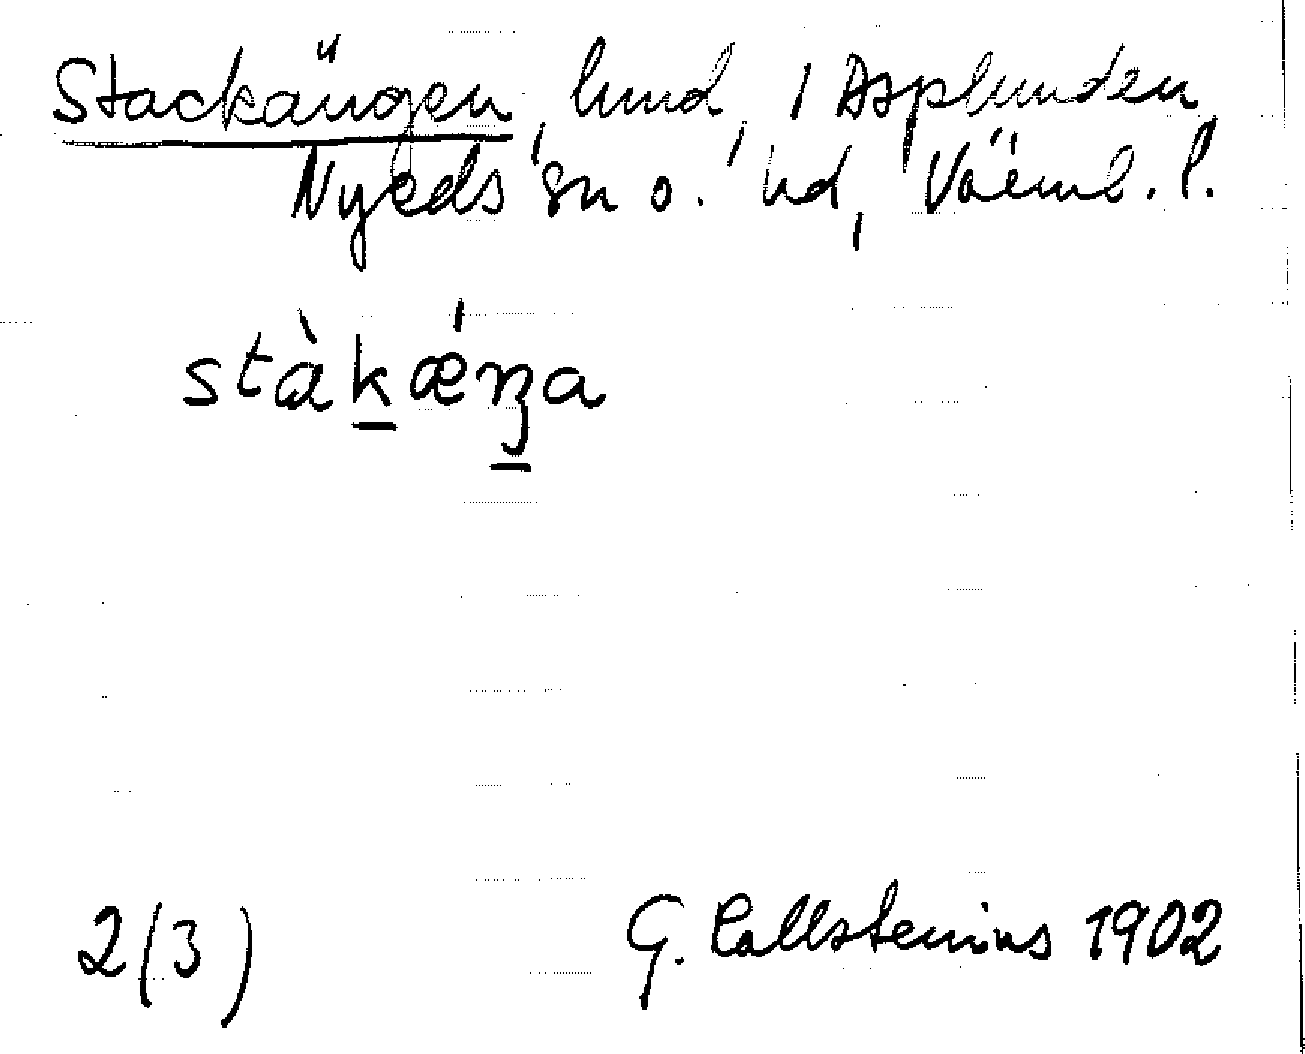 Stackängen, lund, i Asplunden,
Nyeds sn o. hd, Värml. l.
stàkǽŋa
2(3) G. Kallstenius 1902